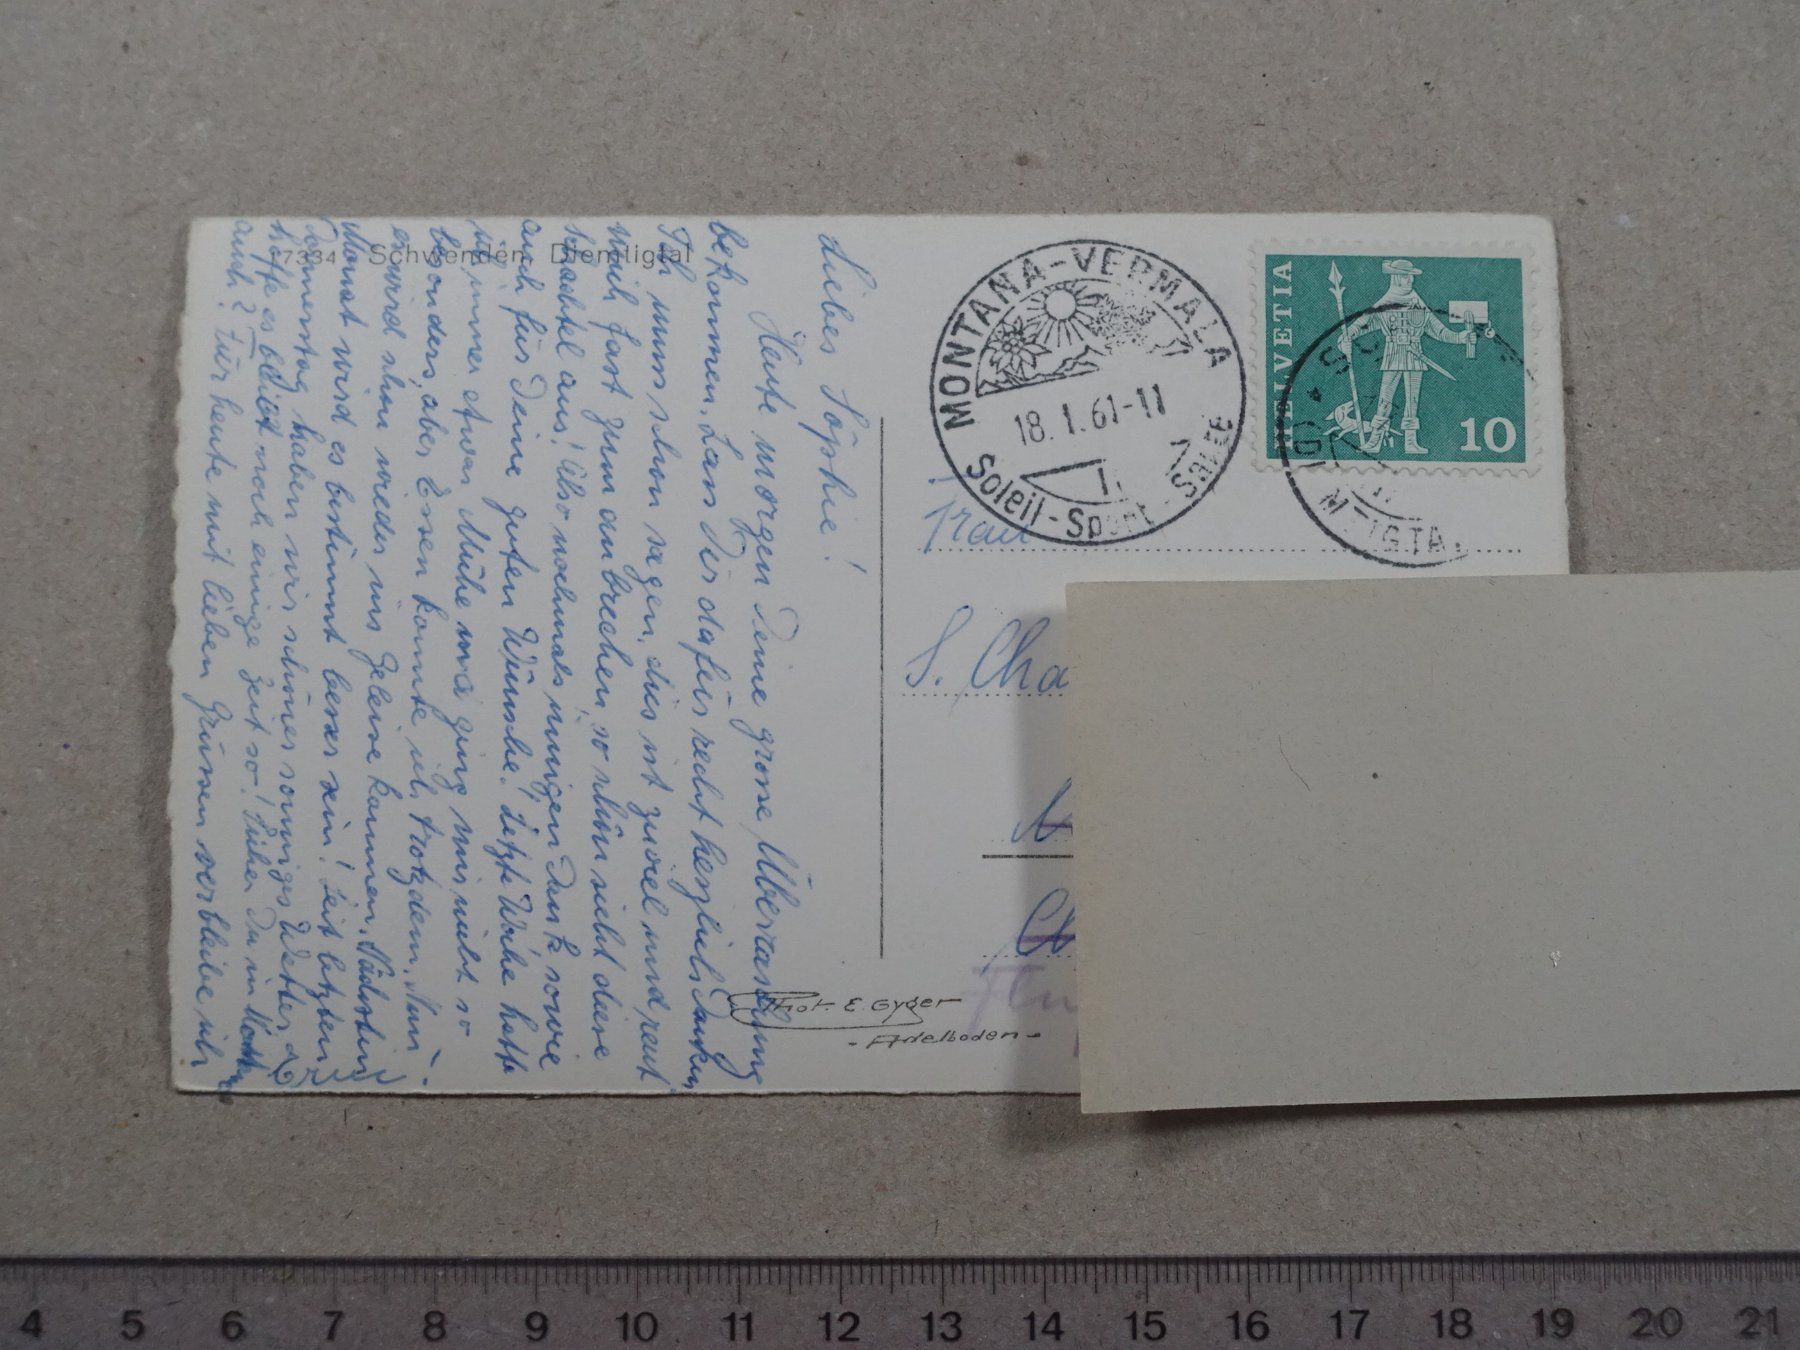 17334 Schwenden, Diemtigtal
Liebes Söphie!
Heute morgen Deine grosse Überraschung
bekommen. Lass Dir dafür recht herzlich danken
Ich muss schon sagen, dies ist zuviel und
mich fast zum an brechen, so schön sieht diese
Schachtel aus! Also nochmals innigen Dank sowie
auch für Deine guten Wünsche. Letzte Woche hatte
immer etwas Mühe ging mir nicht so
besonders, aber Essen konnte ich trotzdem. Nun
es wird schon wieder ins Geleise kommen. Nächsten
Monat wird es bestimmt besser sein! Seit letzten
Donnerstag haben wir schönes sonniges Wetter
hoffe es bleibt noch einige Zeit so!
auch? Für heute mit lieben Grüssen verbleibe ich
MONTANA-VERMALA
18.1.61-11
Soleil - Sport - Santé
HELVETIA
10
Frau
S. Cha
Phot. E. Gyger
- Adelboden -
4 5 6 7 8 9 10 11 12 13 14 15 16 17 18 19 20 21